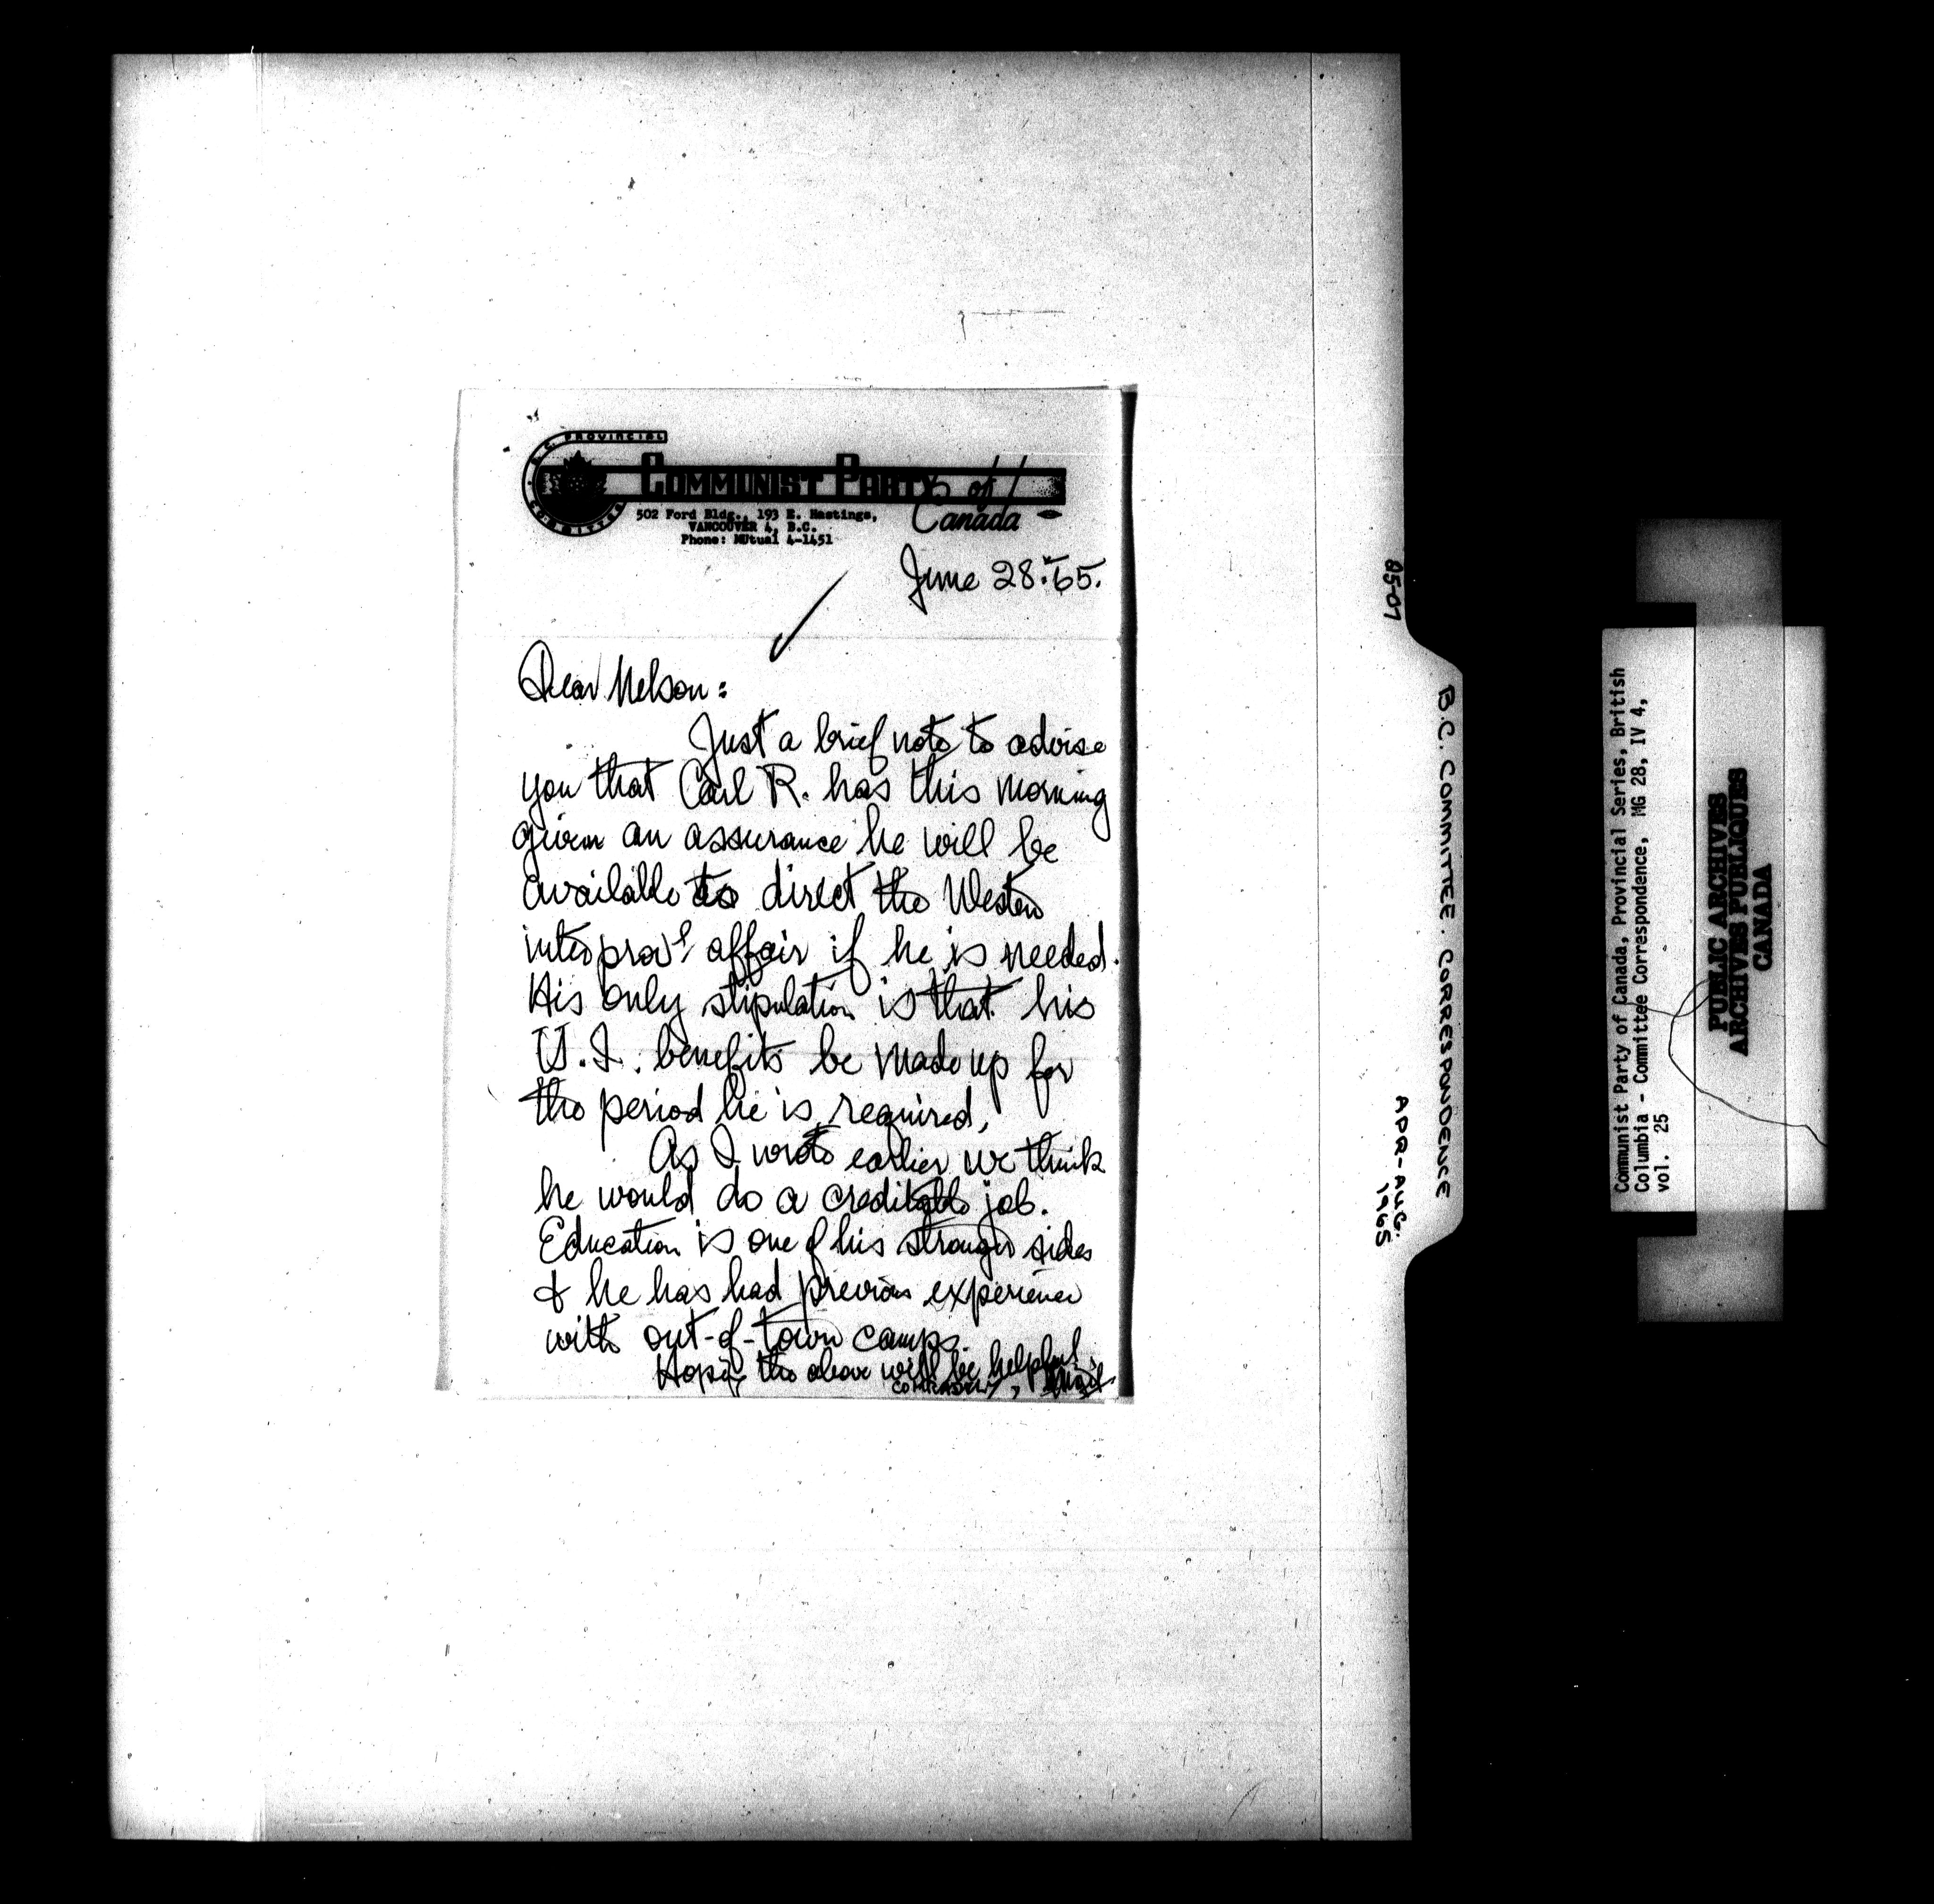 B.C. PROVINCIAL
COMMITTEE
COMMUNIST PARTY of
Canada
502 Ford Bldg., 193 E. Hastings,
VANCOUVER 4, B.C.
Phone: MUtual 4-1451
June 28. '65.
Dear Nelson:
Just a brief note to advise
you that Carl R. has this morning
given an assurance he will be
available to direct the Western
interprov'l affair if he is needed.
His only stipulation is that his
U.I. benefits be made up for
the period he is required.
As I wrote earlier we think
he would do a creditable job.
Education is one of his stronger sides
& he has had previous experience
with out-of-town camps.
Hoping the above will be helpful.
COMRADELY,
05-07
B.C. COMMITTEE. CORRESPONDENCE
APR-AUG.
1965
Communist Party of Canada, Provincial Series, British
Columbia - Committee Correspondence, MG 28, IV 4,
vol. 25
PUBLIC ARCHIVES
ARCHIVES PUBLIQUES
CANADA